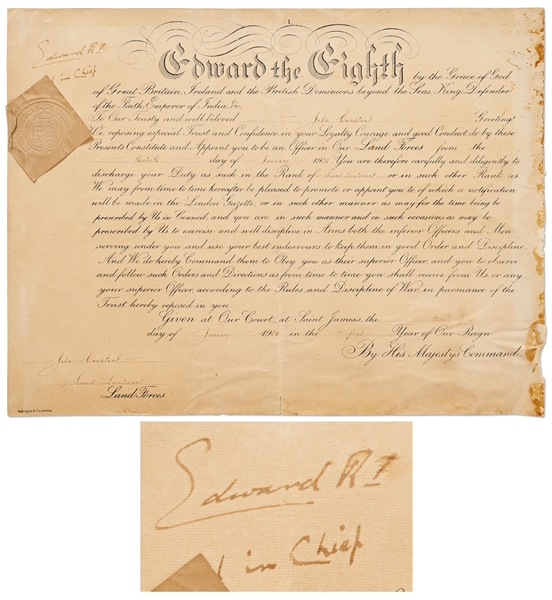 Edward R I
in Chief
Edward the Eighth by the Grace of God
of Great Britain, Ireland and the British Dominions beyond the Seas King, Defender
of the Faith, Emperor of India, &c.
To Our Trusty and well beloved John Constant Greeting!
We reposing especial Trust and Confidence in your Loyalty, Courage, and good Conduct, do by these
Presents Constitute and Appoint you to be an Officer in Our Land Forces from the
day of January 1936 You are therefore carefully and diligently to
discharge your Duty as such in the Rank of Second Lieutenant or in such other Rank as
We may from time to time hereafter be pleased to promote or appoint you to, of which a notification
will be made in the London Gazette, or in such other manner as may for the time being be
prescribed by Us in Council, and you are in such manner and on such occasions as may be
prescribed by Us to exercise and well discipline in Arms both the inferior Officers and Men
serving under you and use your best endeavours to keep them in good Order and Discipline.
And We do hereby Command them to Obey you as their superior Officer, and you to observe
and follow such Orders and Directions as from time to time you shall receive from Us, or any
your superior Officer, according to the Rules and Discipline of War, in pursuance of the
Trust hereby reposed in you.
Given at Our Court, at Saint James's, the
day of January 1936 in the first Year of Our Reign
By His Majesty's Command,
John Constant
Second Lieutenant
Land Forces.
Edward R I
in Chief